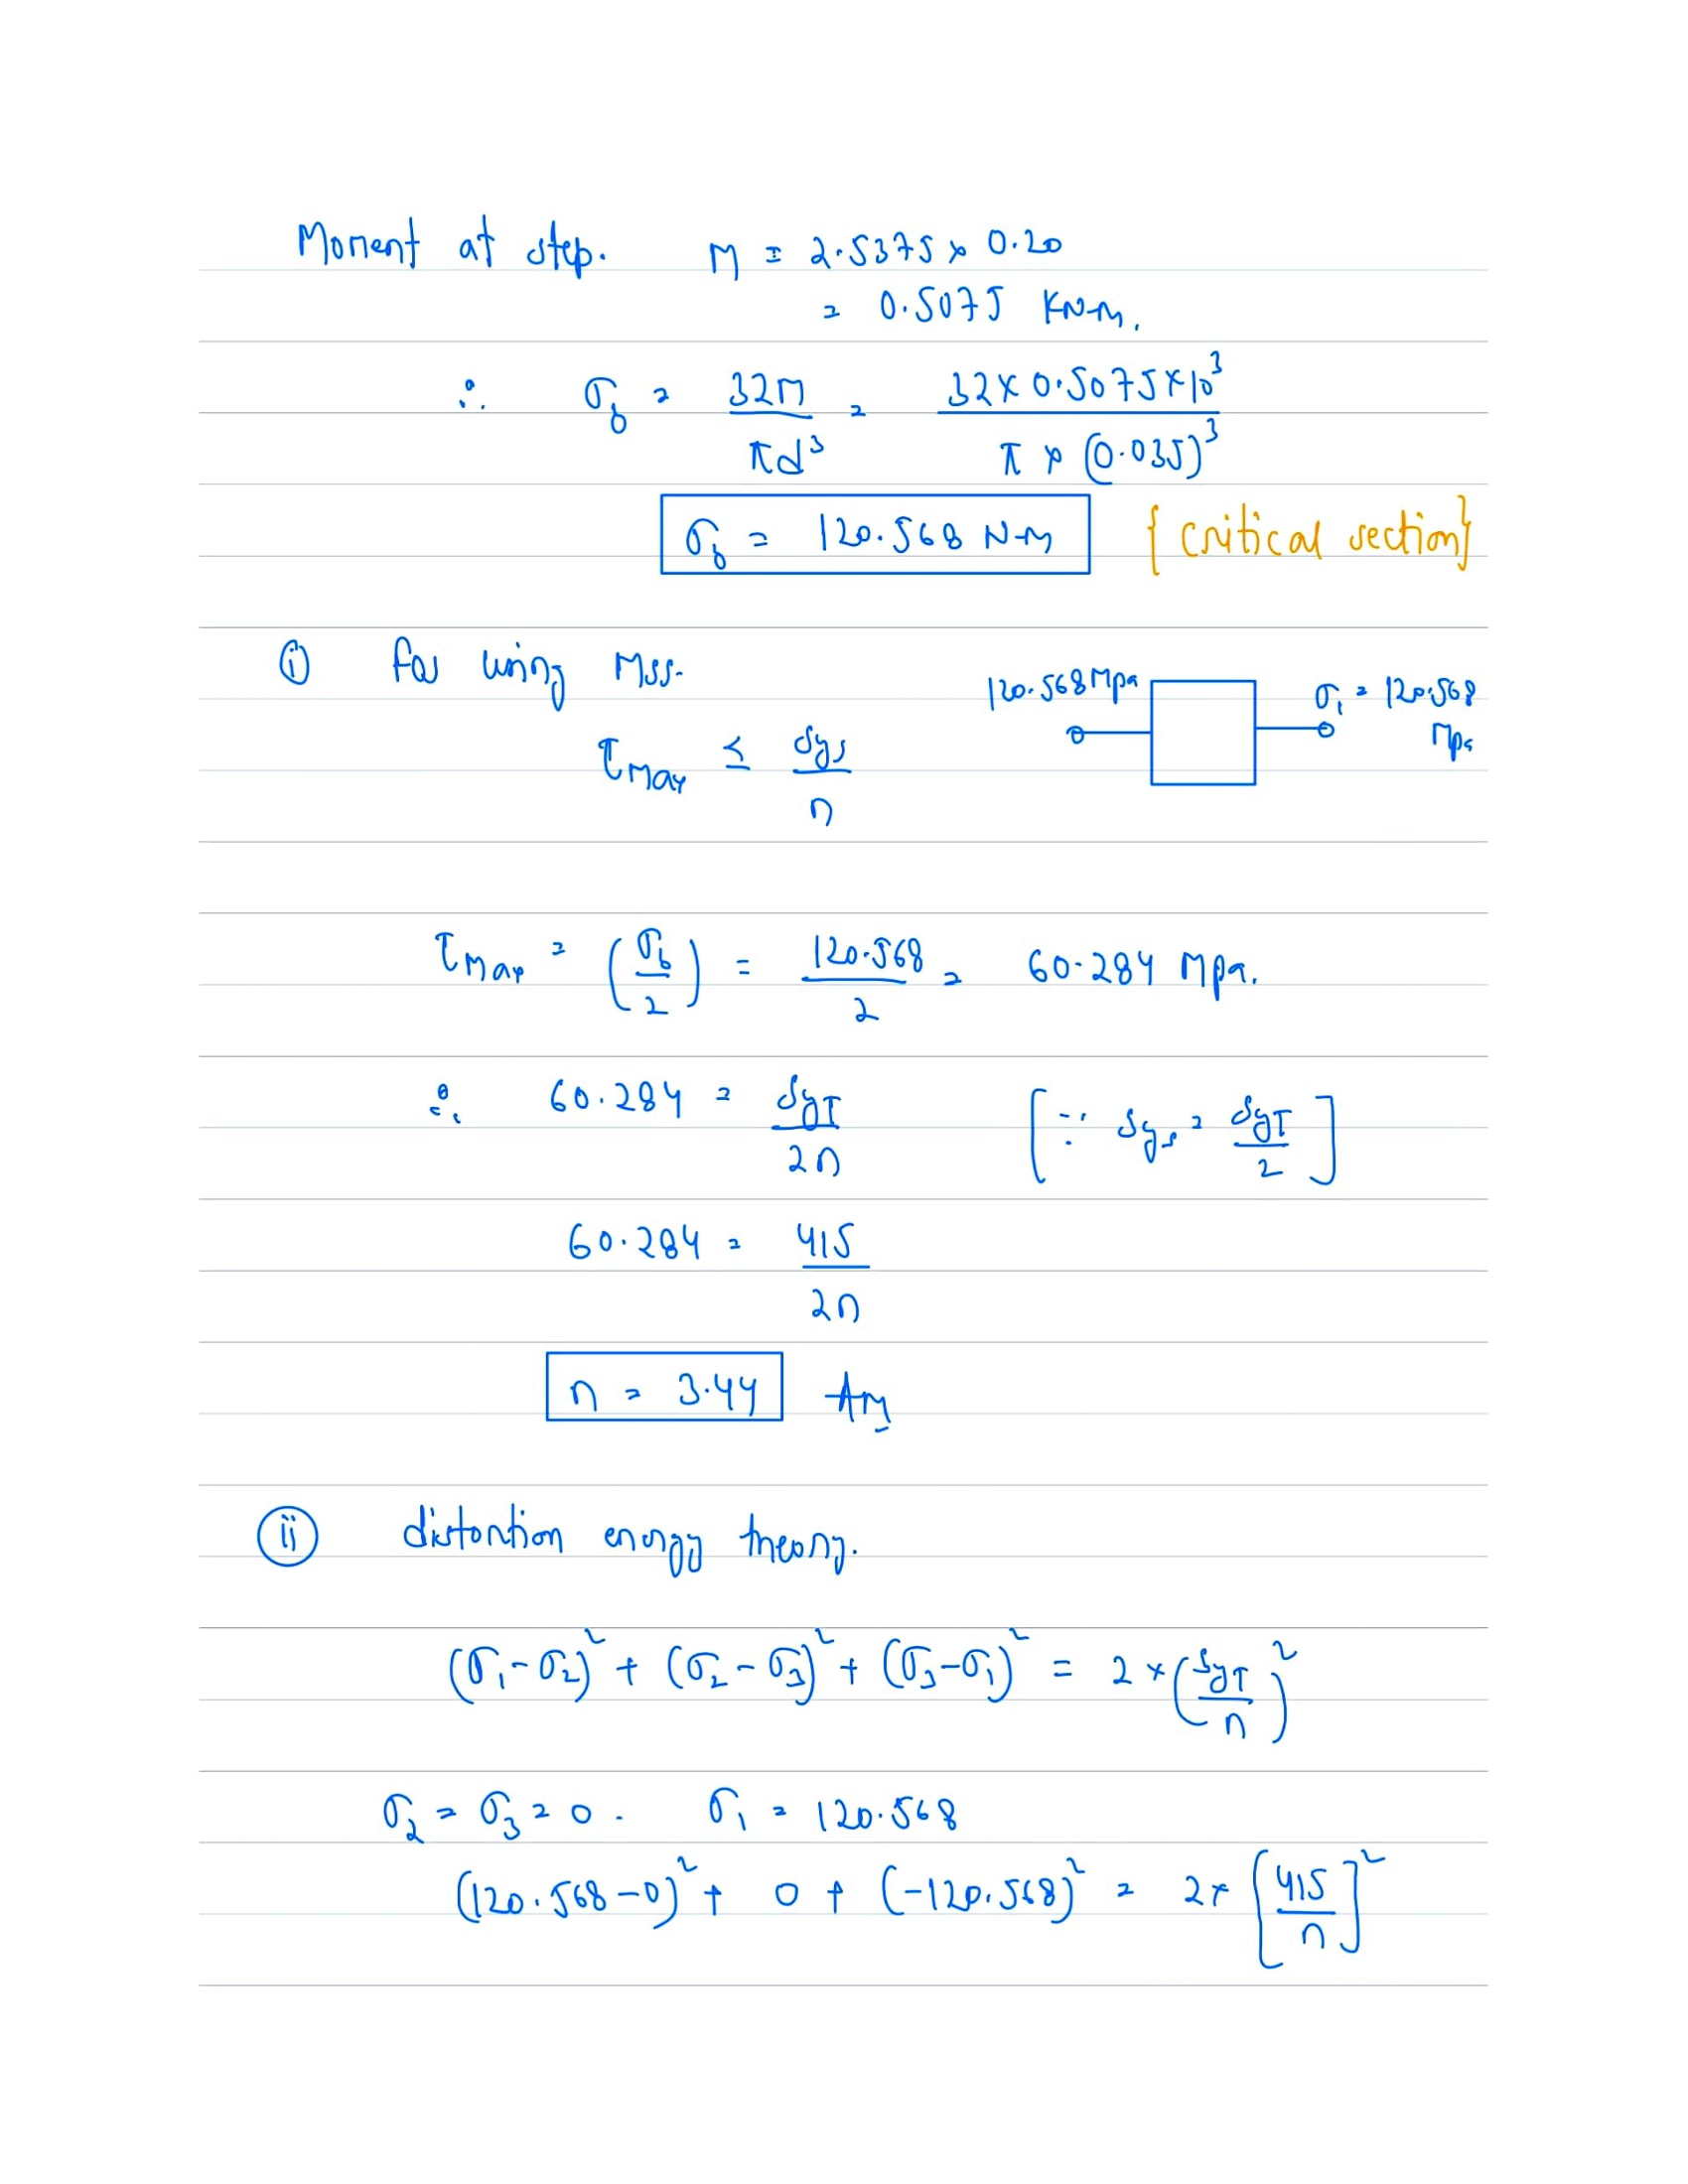 Moment at step. M = 2.5375 × 0.20
= 0.5075 KN-m.
∴ σb = 32M / πd³ = 32×0.5075×10³ / π × (0.035)³
σb = 120.568 N-m {critical section}
① for using MSS.
120.568 Mpa σ₁ = 120.568 Mpa
τmax ≤ Sys / n
τmax = (σb / 2) = 120.568 / 2 = 60.284 Mpa.
∴ 60.284 = SyT / 2n [∵ Sys = SyT / 2]
60.284 = 415 / 2n
n = 3.44 Ans
ⓘⓘ distortion energy theory.
(σ₁-σ₂)² + (σ₂-σ₃)² + (σ₃-σ₁)² = 2 × (SyT / n)²
σ₂ = σ₃ = 0. σ₁ = 120.568
(120.568-0)² + 0 + (-120.568)² = 2× [415 / n]²